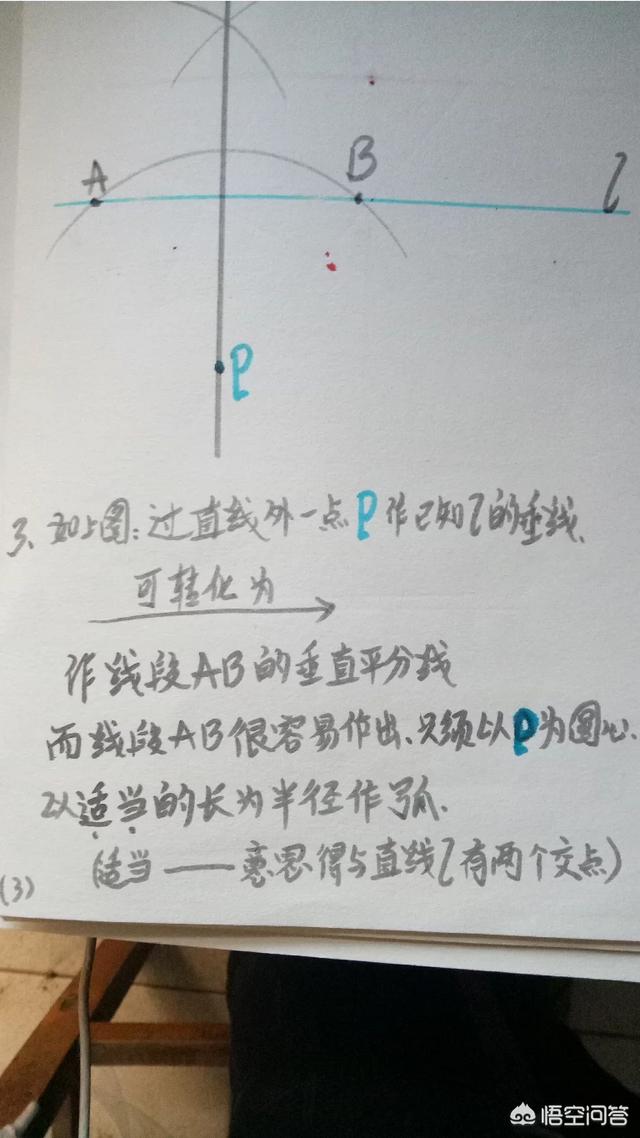 A
B
l
P
3、如上图:过直线外一点P作已知l的垂线、
可转化为
作线段AB的垂直平分线
而线段AB很容易作出、只须以P为圆心、
以适当的长为半径作弧.
(适当——意思得与直线l有两个交点)
(3)
悟空问答